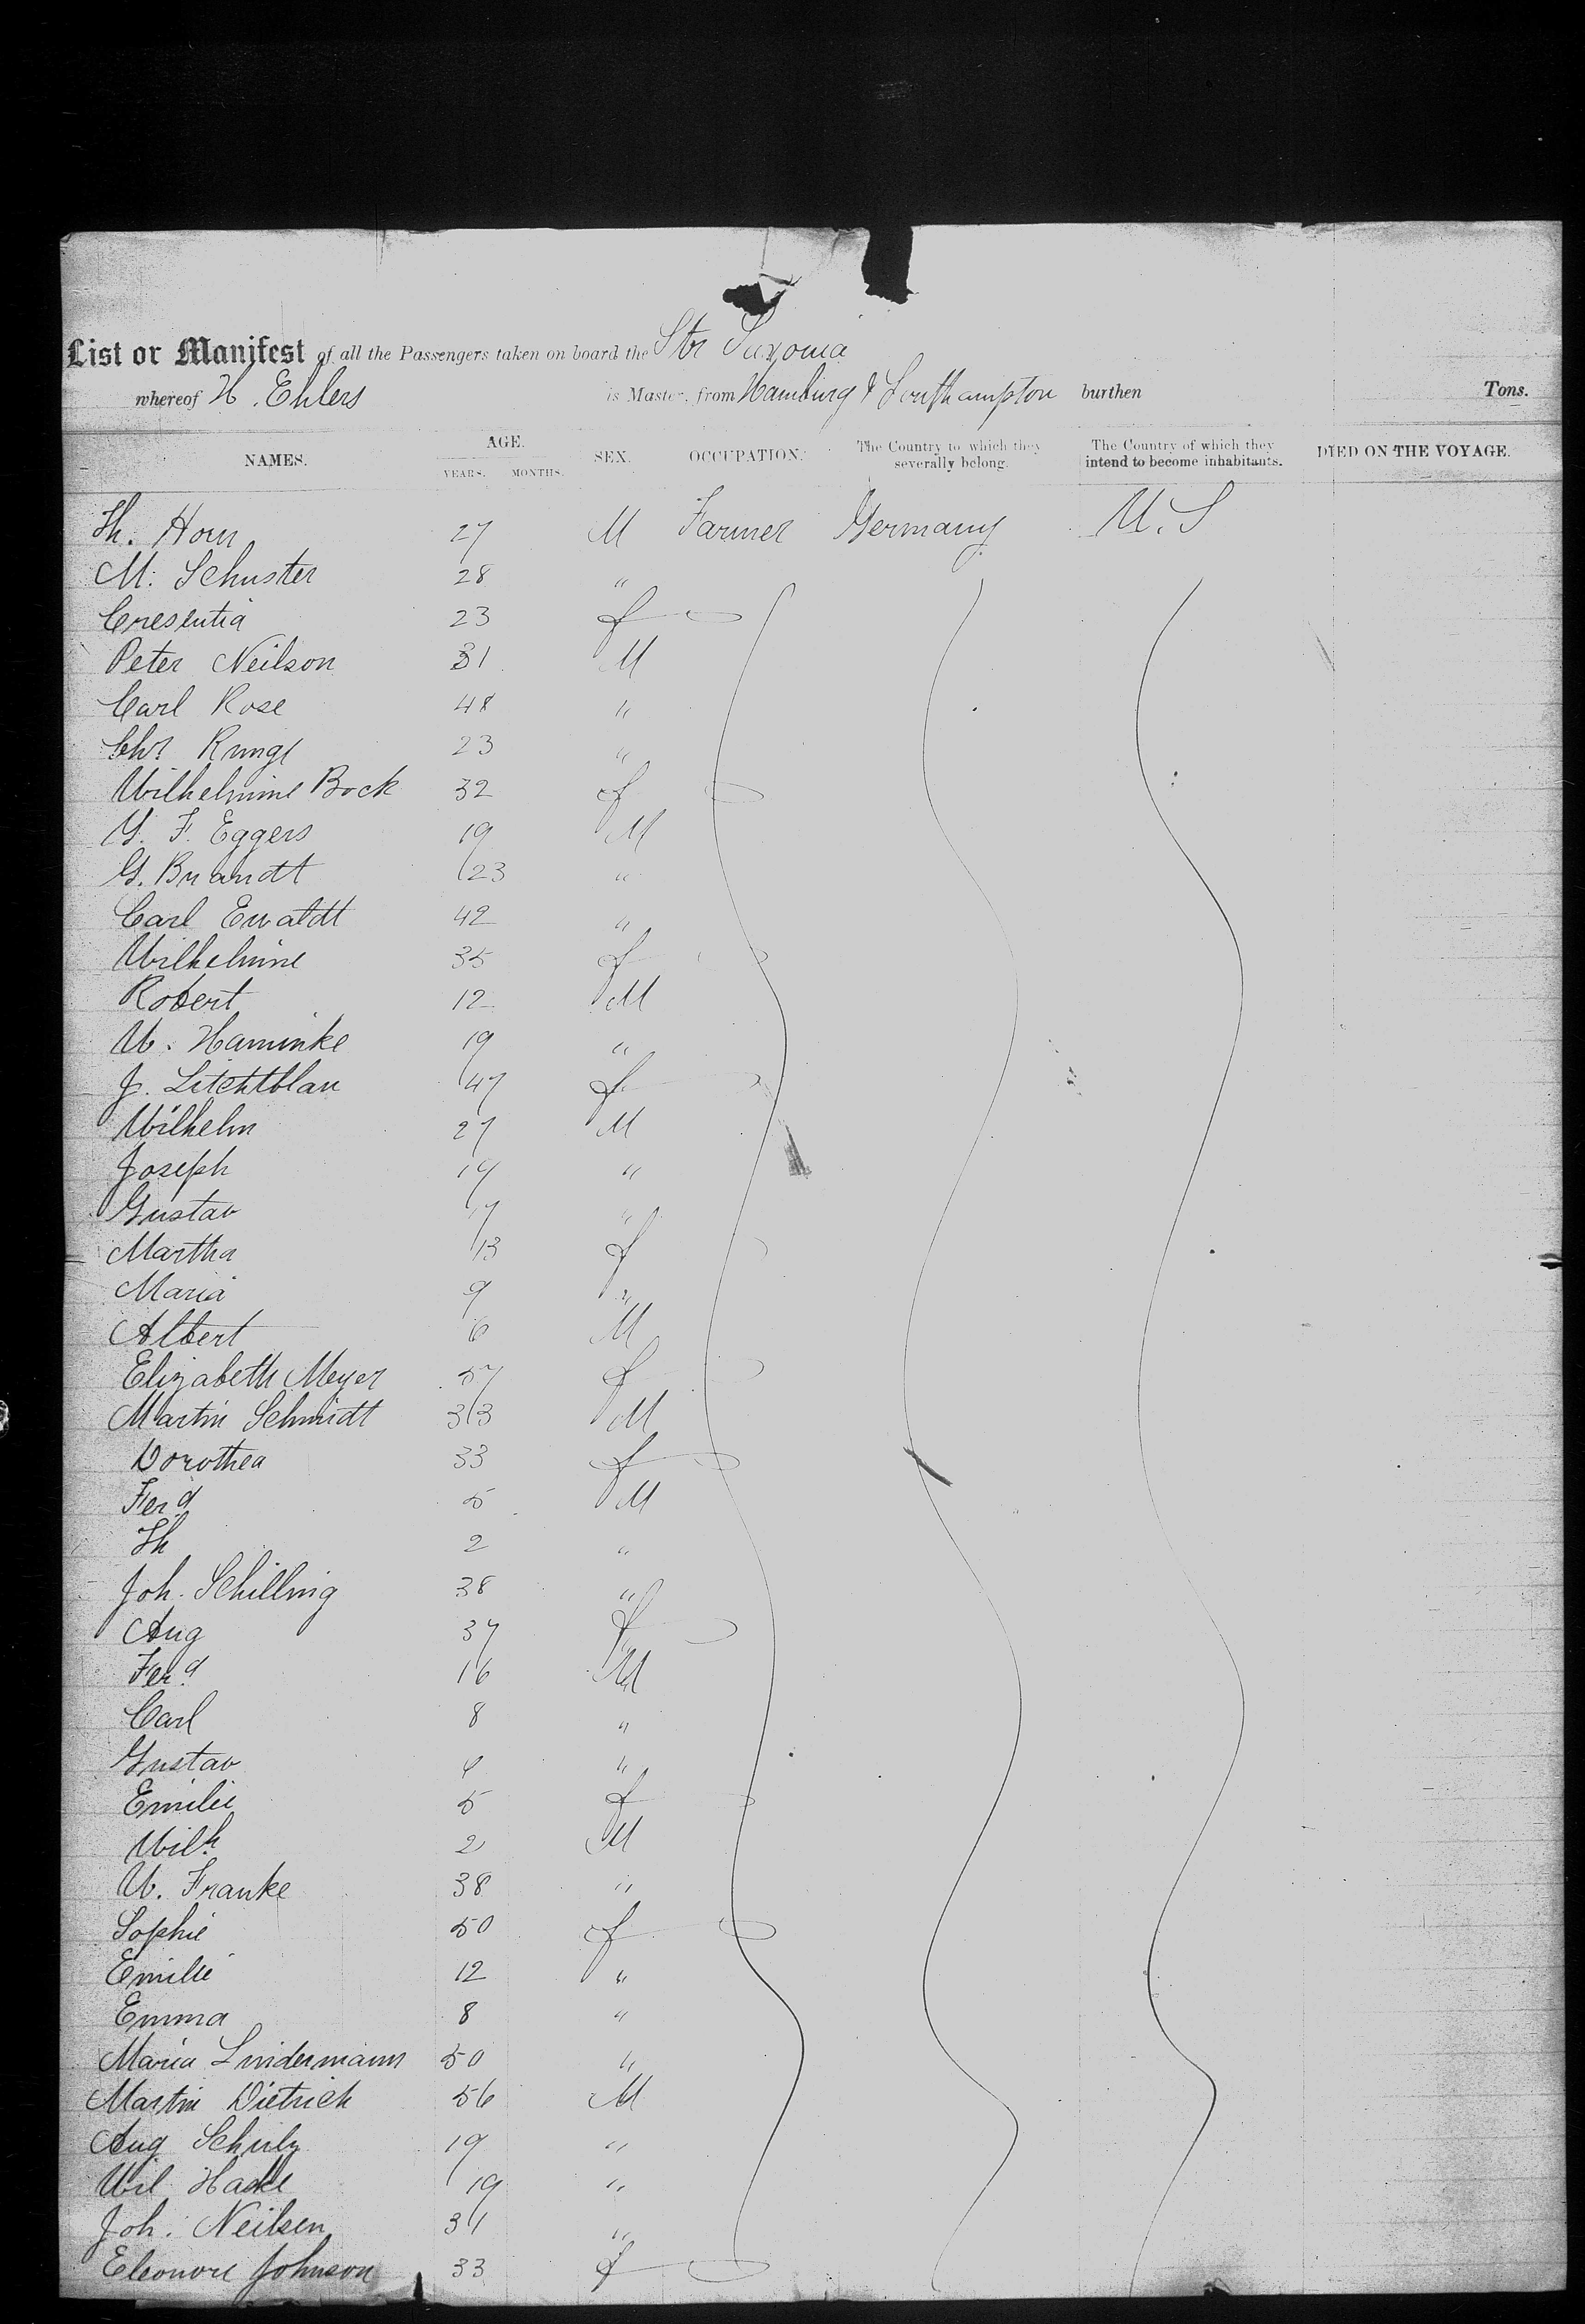 List or Manifest of all the Passengers taken on board the Str Saxonia
whereof H. Ehlers is Master, from Hamburg & Southampton burthen Tons.
NAMES. AGE. YEARS. MONTHS. SEX. OCCUPATION. The Country to which they severally belong. The Country of which they intend to become inhabitants. DIED ON THE VOYAGE.
Th. Horn 27 M Farmer Germany U.S
M. Schuster 28 "
Cresentia 23 f
Peter Neilson 31 M
Carl Rose 48 "
Chs Runge 23 "
Wilhelmine Bock 32 f
G. F. Eggers 19 M
G. Brandt 23 "
Carl Ewaldt 42 "
Wilhelmine 35 f
Robert 12 M
W. Haminke 19 "
J. Litchtblau 47 f
Wilhelm 27 M
Joseph 19 "
Gustav 17 "
Martha 13 f
Maria 9 "
Albert 6 M
Elizabeth Meyer 57 f
Martin Schmidt 33 M
Dorothea 33 f
Ferd 5 M
Th 2 "
Joh. Schilling 38 "
Aug 37 f
Ferd 16 M
Carl 8 "
Gustav "
Emilie 5 f
Wilh 2 M
W. Franke 38 "
Sophie 50 f
Emilie 12 "
Emma 8 "
Maria Lindermann 50 "
Martin Dietrich 56 M
Aug Schulz 19 "
Wil 19 "
Joh. Neilsen 31 "
Eleonore Johnson 33 f